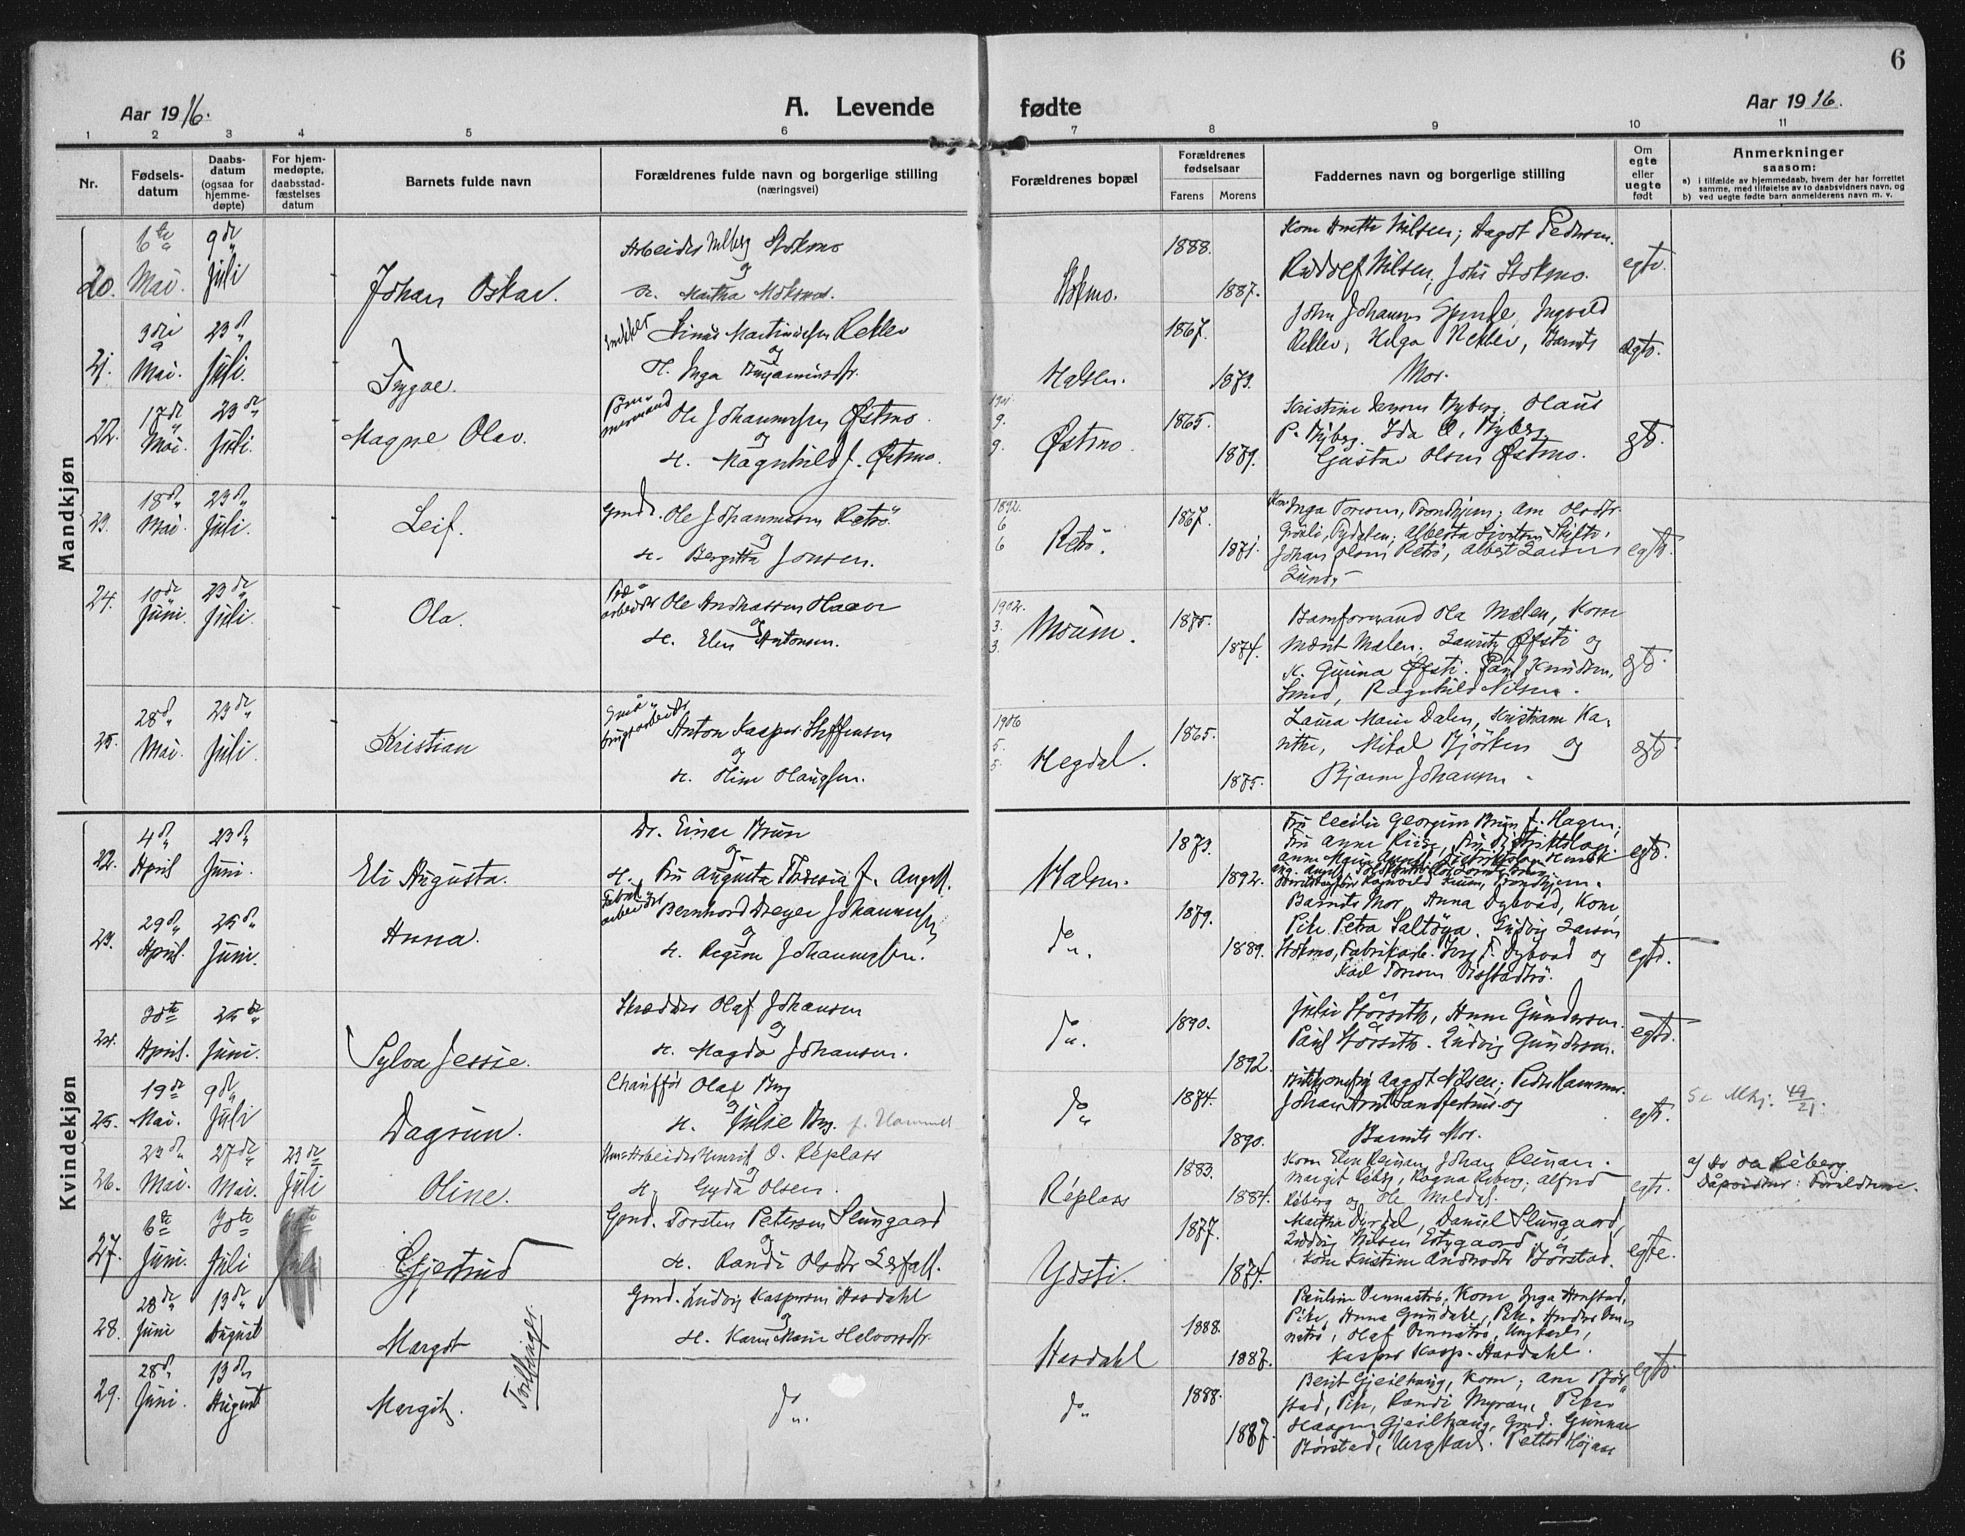 6
Aar 1916.
A. Levende fødte
Aar 1916.
1 2 3 4 5 6 7 8 9 10 11
Nr.
Fødsels-
datum
Daabs-
datum
(ogsaa for
hjemme-
døpte)
For hjem-
medøpte,
daabsstad-
fæstelses
datum
Barnets fulde navn
Forældrenes fulde navn og borgerlige stilling
(næringsvei)
Forældrenes bopæl
Forældrenes
fødselsaar
Farens Morens
Faddernes navn og borgerlige stilling
Om
egte
eller
uegte
født
Anmerkninger
saasom:
a) i tilfælde av hjemmedaab, hvem der har forrettet
samme, med tilføielse av to daabsvidners navn, og
b) ved uegte fødte barn anmelderens navn m. v.
Mandkjøn
20. 6te Mai. 9de Juli
Johan Oskar.
Arbeider Stokmo
og
H. Martha
Stokmo. 1888. 1887.
Nilsen; Aagot Pedersen.
Nilsen, Johs Stokmo.
egte.
21. 3die Mai. 23d Juli.
Trygve.
Martinusen Reklev
og
H. Inga Benjaminsdtr.
Halsen. 1867. 1873.
John Johansen Ingvald
Reklev, Helga Reklev, Barnets
Mor.
egte.
22. 17de Mai. 23de Juli.
Magne Olav.
Ole Johannessen Østmo.
og
H. Magnhild f. Østmo.
9.
9.
Østmo. 1865. 1879.
Kristine Myberg, Olaus
P. Myberg. Ida O. Myberg
Gustav Olsen Østmo.
egte.
23. 18de Mai. 23de Juli
Leif.
Gmdr. Ole Johannesen Retrø
og
H. Bergitta Jonsen.
1892.
6
6
Retrø. 1867. 1871.
Kone Inga Toresen, Trondhjem; Ane Olsdtr.
Græsli, Tydalen; Alberta Sivertsen
Johan Olsen Retrø, Albert Larsen
Lund.
egte.
24. 10de Juni. 23de Juli.
Ola.
arbeider Ole Andreassen Haave
og
H. Elen Antonsen.
1902.
3.
3.
Mæum. 1875. 1874.
Banformand Ole Mælen, Kone
Mælen, Lauritz Øfsti og
H. Gurina Øfsti. Paul Knudsen,
Ragnhild Nilsen.
egte.
25. 28d Mai. 23de Juli.
Kristian
Anton Kasper Steffensen
og
H. Haugsen.
1906
5.
5.
Hegdal. 1865. 1875.
Laura Marie Dalen, Kristiane Ka-
Mikal Bjørken og
Bjarne Johansen.
egte
Kvindekjøn
22. 4d April 23d Juni.
Eli Augusta.
Dr. Einar Brun
og
H. Fru Augusta Theresia f. Angell.
Halsen. 1873. 1892.
Fru Cecilie Georgine Brun f. Hagen,
egte.
23. 29d April. 25d Juni.
Anna.
Fabrik
arbeider Bernhard Dreyer Johannessen
og
H. Regine Johannessen.
do. 1879. 1889.
Barnets Mor, Anna Dybvad, Kone,
Pike Petra Saltøya. Ludvig Larsen
Stokmo, Fabrikarb. Dybvad og
Karl
egte.
24. 30te April. 25de Juni.
Sylva Jessie.
Skrædder Olaf Johansen
og
H. Magda Johansen.
do. 1890. 1892.
Julie Størseth, Anne Gundersen.
Paul Størseth. Ludvig Gundersen.
egte.
25. 19de Mai. 9d Juli
Dagrun.
Chauffør Olaf Berg
og
H. Julie Berg. f. Hammer
do. 1874. 1890.
Aagot Nilsen; Peder Hammer.
Johan og
Barnets Mor.
egte.
Se Mkj. 49/21.
26. 23de Mai. 27de Mai. 23de Juli
Oline.
Arbeider Henrik O. Replass
og
H. Gyda Olsen.
Réplass 1883. 1884.
Kone Elen Reinan, Johan Reinan.
Margit Réberg, Ragna Réberg; Alfred
Réberg og Ole Moldal.
egte.
a) Ole Réberg.
Dåpsvidner: Forældrene.
27. 6te Juni. 30te Juli
Gjertrud
Gmd. Torsten Petersen Slungaard
og
H. Randi Olsdtr Leifall.
Ydsti. 1877. 1874.
Martha Dyrdal, Daniel Slungaard,
Ludvig Nilsen
Kone Kristine Andersdtr Børstad.
egte.
28. 28de Juni 13de August
Margot
Tvillinger.
Gmd. Ludvig Kaspersen Hardahl
og
H. Karen Marie Halvorsdtr.
Hardahl 1888. 1887.
Pauline Vennatrø, Kone, Inga
Pike, Anna Grundahl, Pike. Anders Ven-
natrø, Olaf Vennatrø, Ungkarle,
Kasper Kasp. Hardahl.
egte.
29. 28d Juni. 13de August
Margit.
do.
do 1888. 1887.
Berit Gjeilhaug, Kone; Ane Bør-
stad, Pike, Randi Myran, Pike
Haagen Gjeilhaug, Gmd. Gunnar
Børstad, Ungkarl. Petter Højem